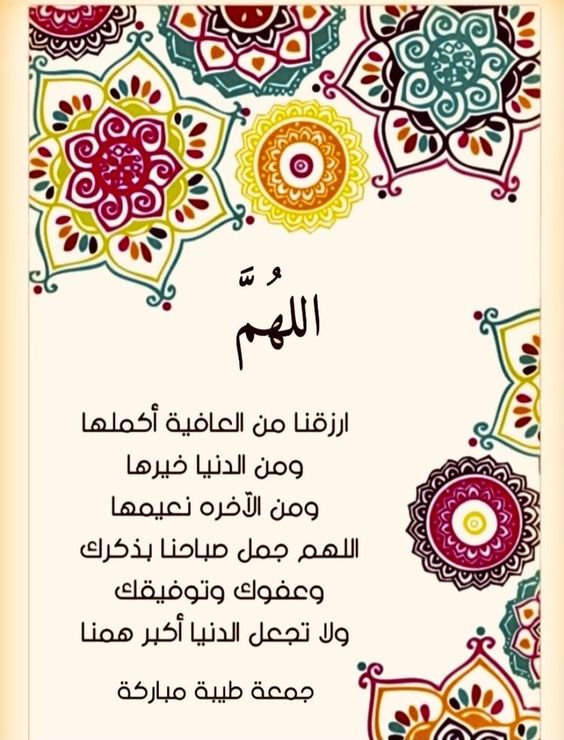 اللهُمَّ
ارزقنا من العافية أكملها
ومن الدنيا خيرها
ومن الآخره نعيمها
اللهم جمل صباحنا بذكرك
وعفوك وتوفيقك
ولا تجعل الدنيا أكبر همنا
جمعة طيبة مباركة